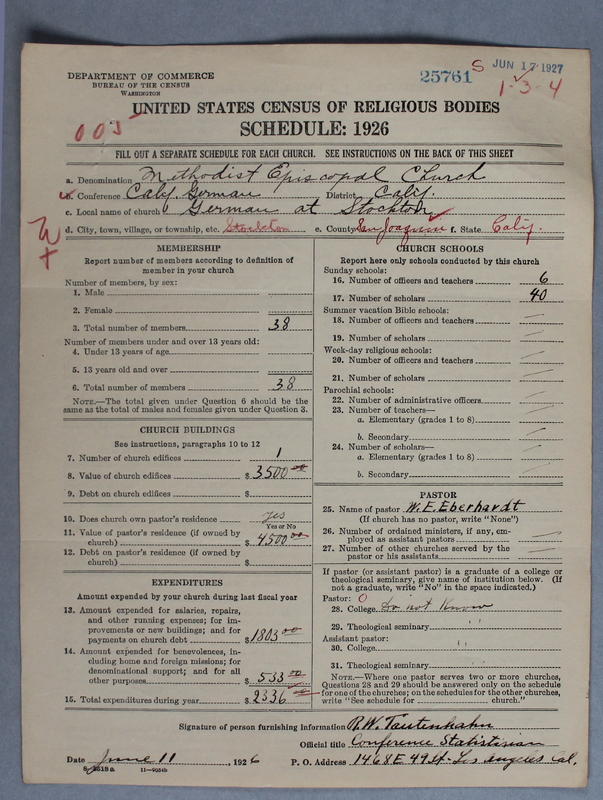 DEPARTMENT OF COMMERCE
BUREAU OF THE CENSUS
WASHINGTON
25761 S JUN 17 1927
1-3-4
UNITED STATES CENSUS OF RELIGIOUS BODIES
003
SCHEDULE: 1926
FILL OUT A SEPARATE SCHEDULE FOR EACH CHURCH. SEE INSTRUCTIONS ON THE BACK OF THIS SHEET
a. Denomination Methodist Episcopal Church
b. Conference Calif. German District Calif.
c. Local name of church German at Stockton
d. City, town, village, or township, etc. Stockton e. County San Joaquin f. State Calif.
MEMBERSHIP
Report number of members according to definition of
member in your church
Number of members, by sex:
1. Male
2. Female
3. Total number of members 38
Number of members under and over 13 years old:
4. Under 13 years of age
5. 13 years old and over
6. Total number of members 38
NOTE.—The total given under Question 6 should be the
same as the total of males and females given under Question 3.
CHURCH BUILDINGS
See instructions, paragraphs 10 to 12
7. Number of church edifices 1
8. Value of church edifices $ 3500 00
9. Debt on church edifices $
10. Does church own pastor's residence yes
Yes or No
11. Value of pastor's residence (if owned by
church) $ 4500 00
12. Debt on pastor's residence (if owned by
church) $
EXPENDITURES
Amount expended by your church during last fiscal year
13. Amount expended for salaries, repairs,
and other running expenses; for im-
provements or new buildings; and for
payments on church debt $ 1803 00
14. Amount expended for benevolences, in-
cluding home and foreign missions; for
denominational support; and for all
other purposes $ 533 00
15. Total expenditures during year $ 2336
CHURCH SCHOOLS
Report here only schools conducted by this church
Sunday schools:
16. Number of officers and teachers 6
17. Number of scholars 40
Summer vacation Bible schools:
18. Number of officers and teachers
19. Number of scholars
Week-day religious schools:
20. Number of officers and teachers
21. Number of scholars
Parochial schools:
22. Number of administrative officers
23. Number of teachers—
a. Elementary (grades 1 to 8)
b. Secondary
24. Number of scholars—
a. Elementary (grades 1 to 8)
b. Secondary
PASTOR
25. Name of pastor W. E. Eberhardt
(If church has no pastor, write "None")
26. Number of ordained ministers, if any, em-
ployed as assistant pastors
27. Number of other churches served by the
pastor or his assistants
If pastor (or assistant pastor) is a graduate of a college or
theological seminary, give name of institution below. (If
not a graduate, write "No" in the space indicated.)
Pastor: 0
28. College Do not know
29. Theological seminary " "
Assistant pastor:
30. College " "
31. Theological seminary
NOTE.—Where one pastor serves two or more churches,
Questions 28 and 29 should be answered only on the schedule
for one of the churches; on the schedules for the other churches,
write "See schedule for church."
Signature of person furnishing information R.W. Tautenhahn
Official title Conference Statistician
Date June 11, 1926 P. O. Address 1468 E 49 St. Los Angeles Cal.
8-2518a 11—9054b